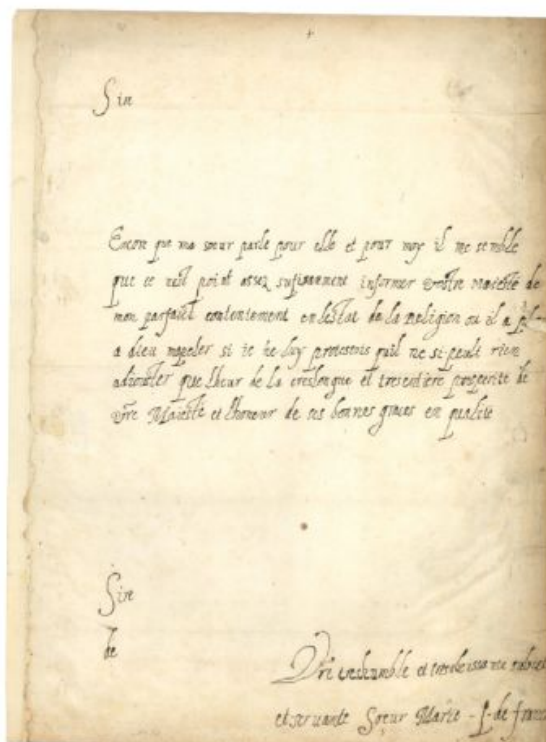 Sire
Encore que ma sœur parle pour elle et pour moy il me semble
que ce nest point assez sufisamment informer vostre Maiesté de
mon parfaict contentement en lestat de la Religion ou il a
a dieu mapeler si ie ne luy protestois quil ne si peult rien
adiouster que lheur de la treslongue et tresentiere prosperité de
vre Maiesté et lhonneur de ses bonnes graces en qualité
Sire
de
Vre treshumble et tresobeissante
et servante Sœur Marie - f - de france